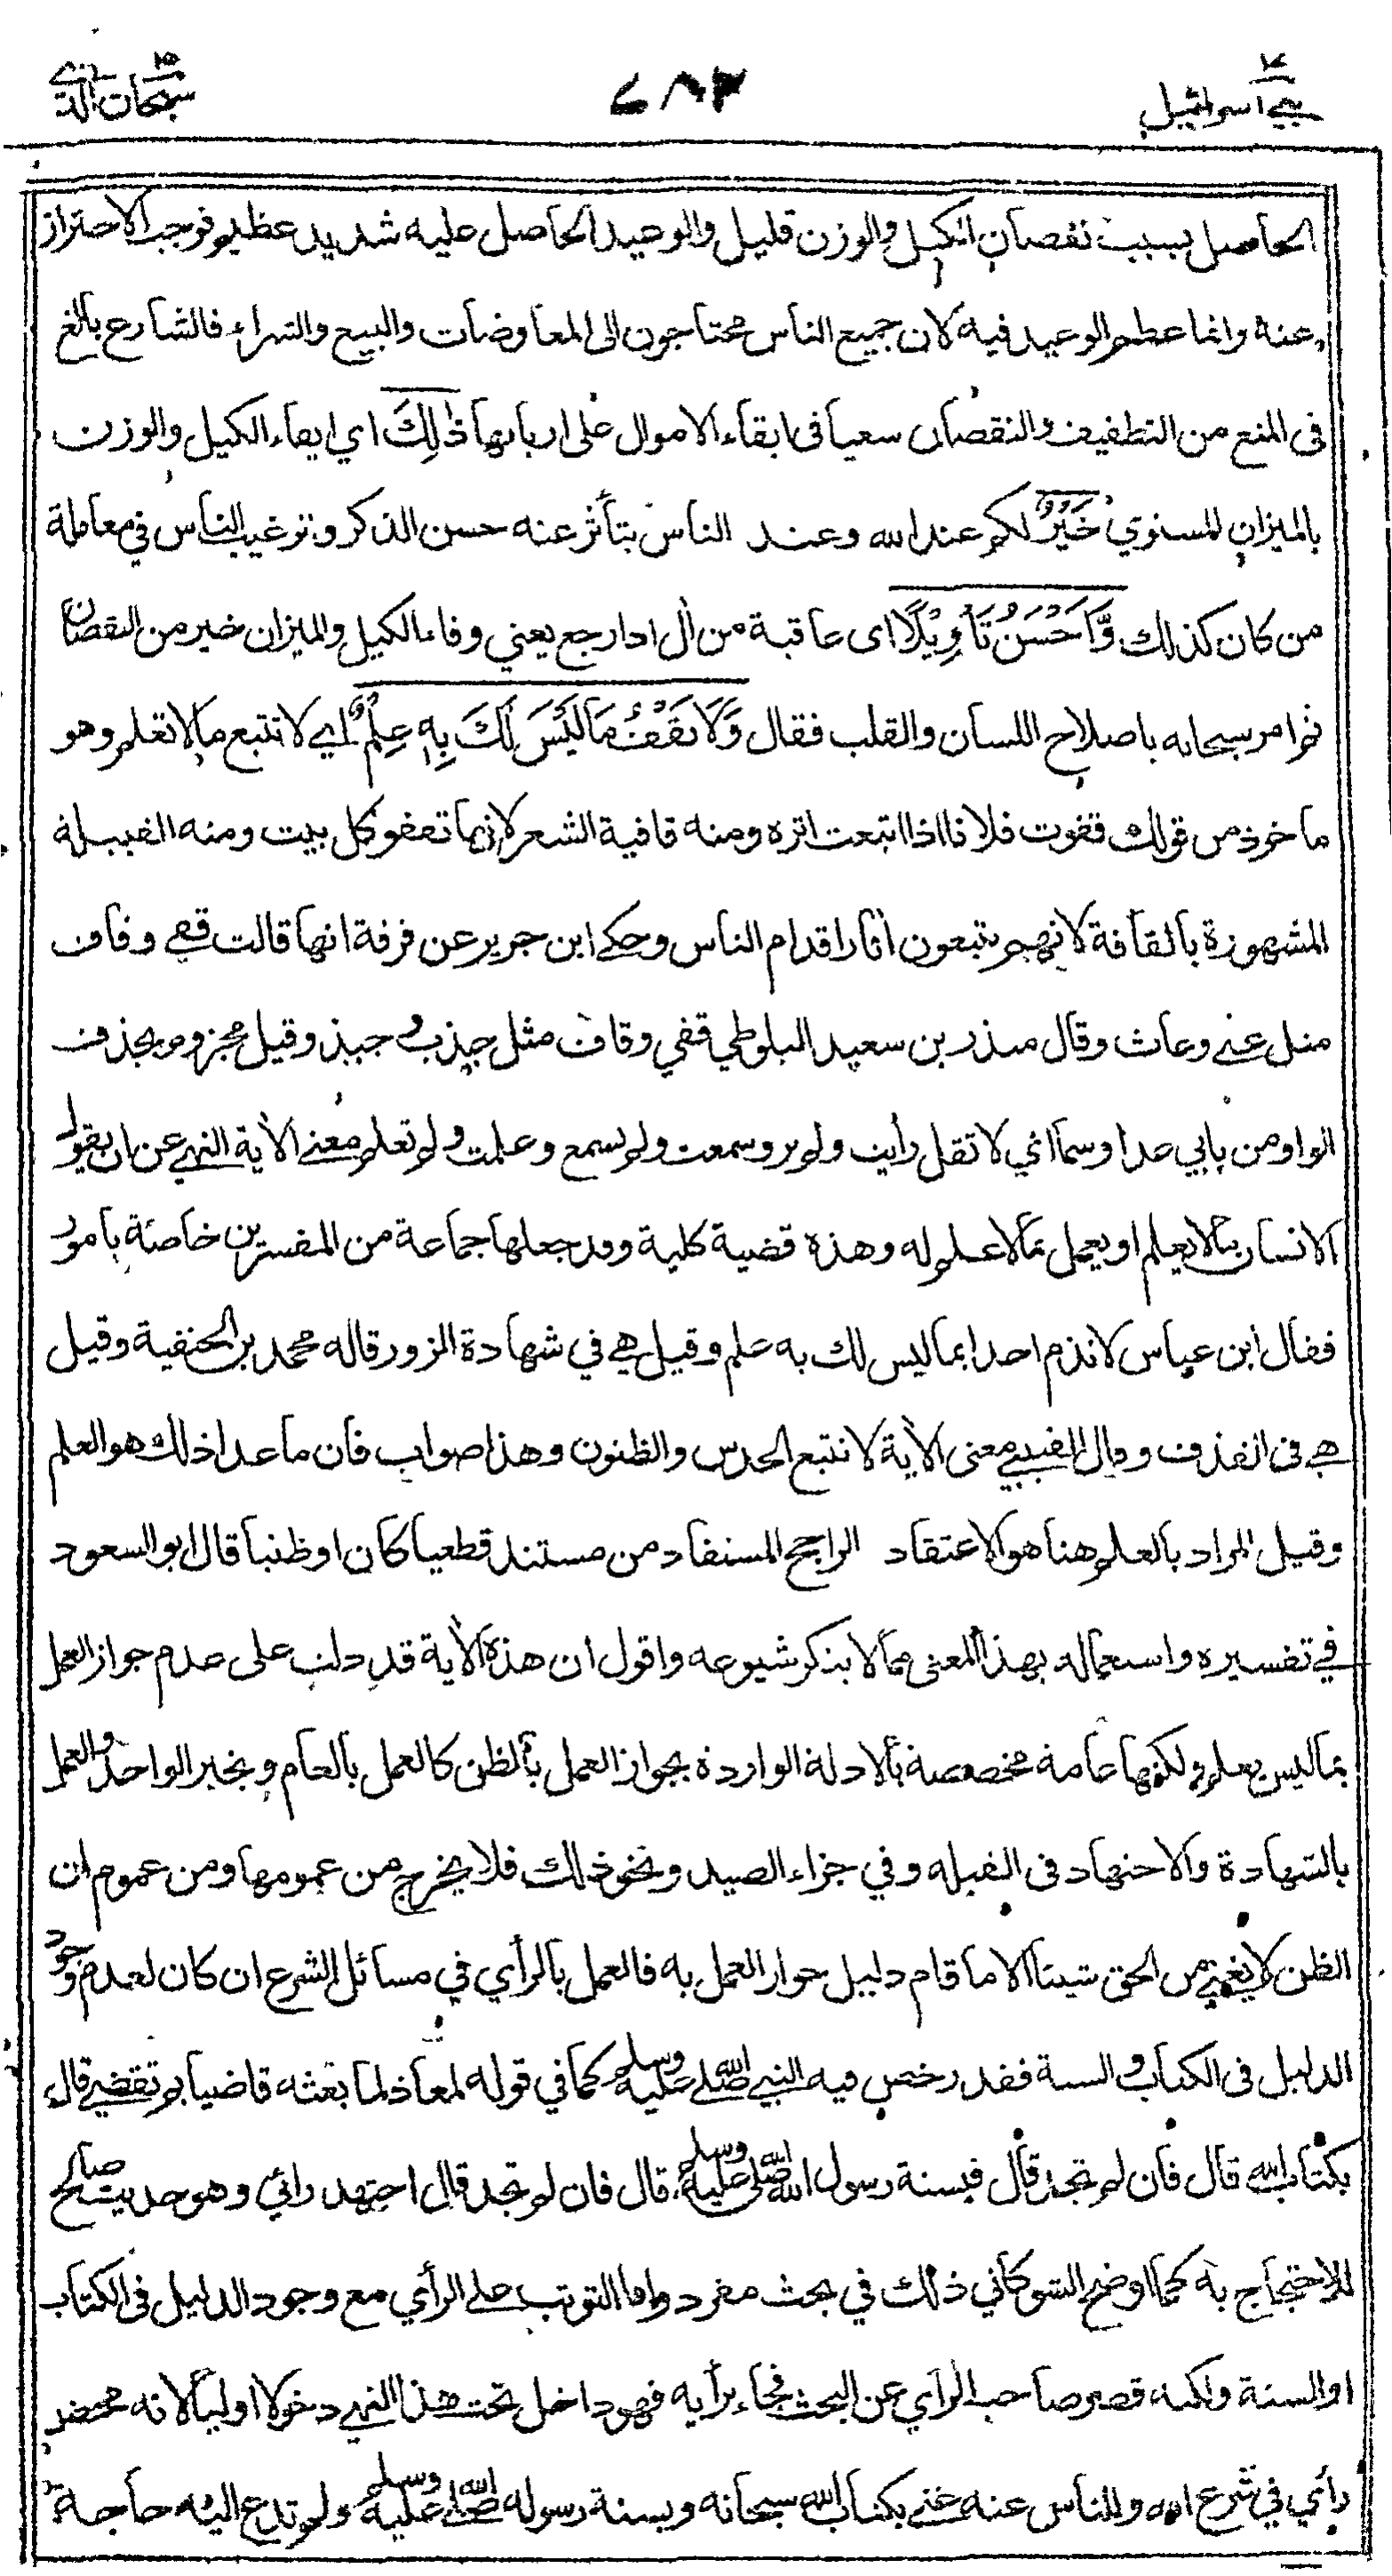 بني اسرائيل ١٧
٦٨٣
سبحان الذي ١٥
الحاصل بسبب نقصان الكيل والوزن قليل والوعيد الحاصل عليه شديد عظيم فوجب الاحتراز
عنه وانما عظم الوعيد فيه لان جميع الناس محتاجون الى المعاوضات والبيع والشراء فالشارع بالغ
فى المنع من التطفيف والنقصان سعيا فى ابقاء الاموال على اربابها ذٰلِكَ اي ايفاء الكيل والوزن
بالميزان المستوي خَيْرٌ لكم عند الله وعند الناس يتأثر عنه حسن الذكر وترغيب الناس في معاملة
من كان كذلك وَّاَحْسَنُ تَأْوِيْلًا اى عاقبة من ال اذا رجع يعني وفاء الكيل والميزان خير من النقصان
ثم امر سبحانه باصلاح اللسان والقلب فقال وَلَا تَقْفُ مَا لَيْسَ لَكَ بِهٖ عِلْمٌ اي لا تتبع ما لا تعلم وهو
ماخوذ من قولك قفوت فلانا اذا اتبعت اثره ومنه قافية الشعر لانها تقفو كل بيت ومنه القبيلة
المشهورة بالقافة لانهم يتبعون اثار اقدام الناس وحكى ابن جرير عن فرقة انها قالت قفى وقاف
مثل عثى وعاث وقال منذر بن سعيد البلوطي قفي وقاف مثل جذب وجبذ وقيل مجزوم بحذف
الواو من بابي عدا وسما اي لا تقل رأيت ولم تر وسمعت ولم تسمع وعلمت ولم تعلم ومعنى الاية النهي عن ان يقول
الانسان ما لا يعلم او يعمل بما لا علم له وهذه قضية كلية وقد جعلها جماعة من المفسرين خاصة بامور
فقال ابن عباس لا تذم احدا بما ليس لك به علم وقيل هي في شهادة الزور قاله محمد بن الحنفية وقيل
هي فى القذف وقال القتيبي معنى الاية لا تتبع الحدس والظنون وهذا صواب فان ما عدا ذلك هو العلم
وقيل المراد بالعلم هنا هو الاعتقاد الراجح المستفاد من مستند قطعيا كان او ظنيا قال ابو السعود
في تفسيره واستعماله بهذا المعنى مما لا ينكر شيوعه واقول ان هذه الاية قد دلت على عدم جواز العمل
بما ليس بعلم ولكنها عامة مخصصة بالادلة الواردة بجواز العمل بالظن كالعمل بالعام وبخبر الواحد والعمل
بالشهادة والاجتهاد فى القبلة وفي جزاء الصيد ونحو ذلك فلا يخرج من عمومها ومن عموم ان
الظن لا يغني من الحق شيئا الا ما قام دليل جواز العمل به فالعمل بالرأي في مسائل الشرع ان كان لعدم وجود
الدليل فى الكتاب والسنة فقد رخص فيه النبي صلى الله عليه وسلم كما في قوله لمعاذ لما بعثه قاضيا بم تقضي قال
بكتاب الله قال فان لم تجد قال فبسنة رسول الله صلى الله عليه وسلم قال فان لم تجد قال اجتهد رائي وهو حديث صالح
للاحتجاج به كما اوضح الشوكاني ذلك في بحث مفرد واما التوثب على الرأي مع وجود الدليل فى الكتاب
او السنة ولكنه قصر صاحب الرأي عن البحث فجاء برأيه فهو داخل تحت هذا النهي دخولا اوليا لانه محض
رأي في شرع الله وللناس عنه غنى بكتاب الله سبحانه وبسنة رسوله صلى الله عليه وسلم ولم تدع اليه حاجة